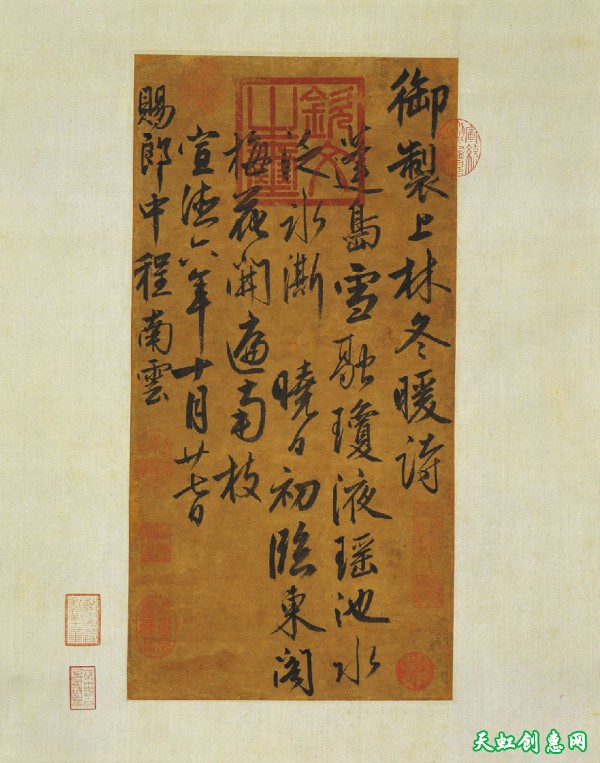 御製上林冬暖詩
蓬島雪融瓊液瑶池水
泛冰澌 曉日初臨東閣
梅花開遍南枝
宣德六年十月廿七日
賜郎中程南雲
欽文之璽
天虹创惠网